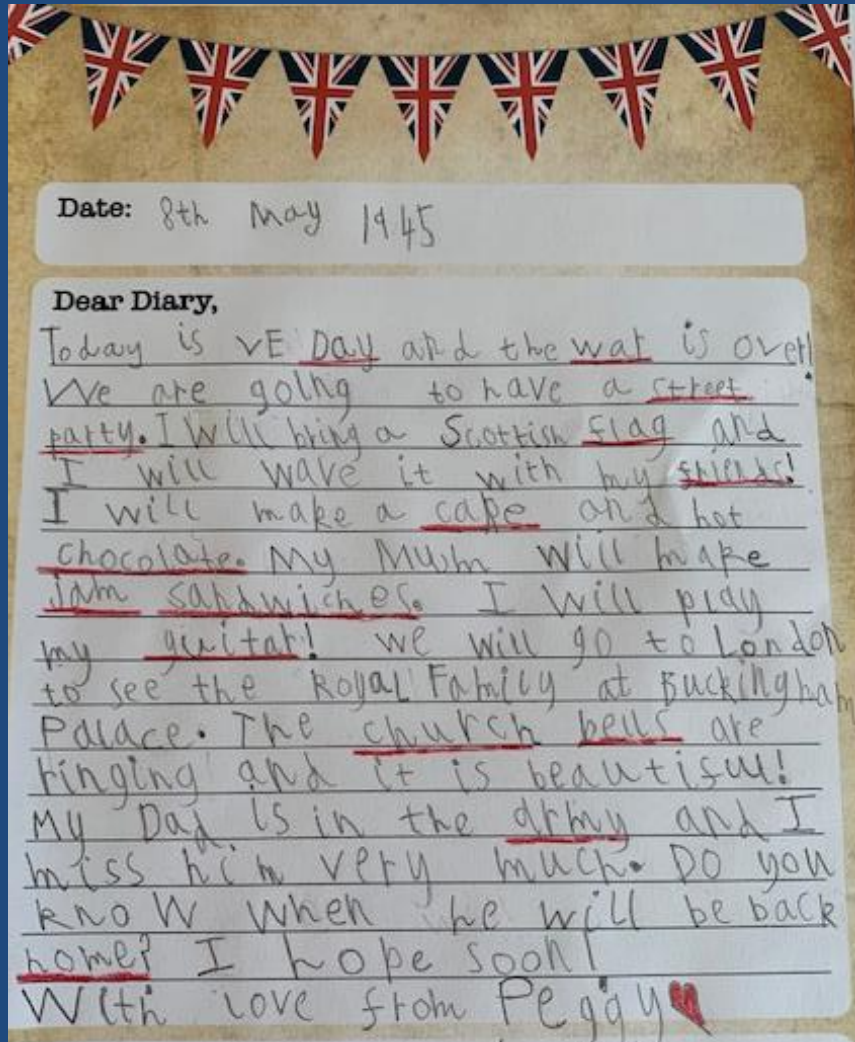 Date: 8th May 1945
Dear Diary,
Today is VE Day and the war is over!
We are going to have a street
party. I will bring a Scottish flag and
I will wave it with my friends!
I will make a cake and hot
chocolate. My Mum will make
jam sandwiches. I will play
my guitar! We will go to London
to see the Royal Family at Buckingham
Palace. The church bells are
ringing and it is beautiful!
My Dad is in the army and I
miss him very much. Do you
know when he will be back
home? I hope soon!
With love from Peggy